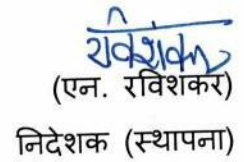 रविशंकर
(एन. रविशंकर)
निदेशक (स्थापना)